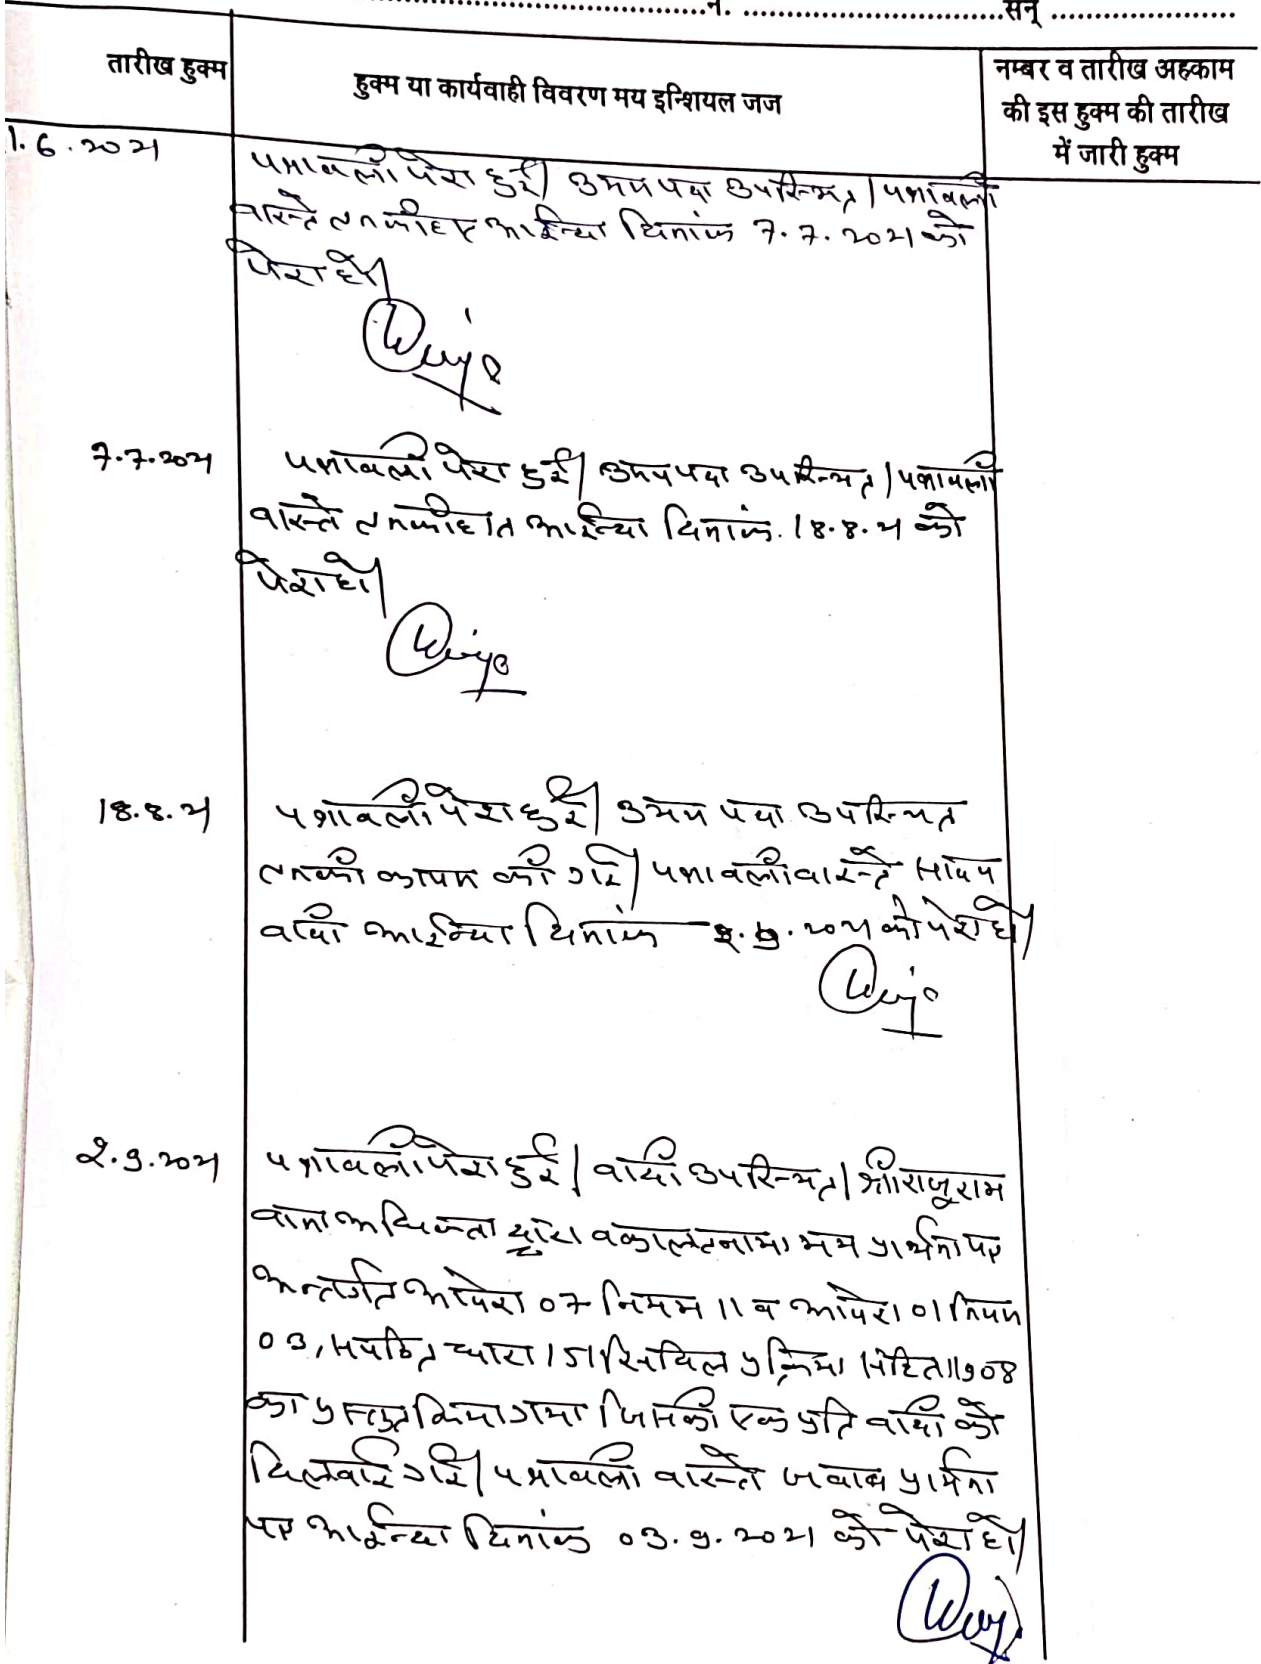 नं. सन्
तारीख हुक्म
हुक्म या कार्यवाही विवरण मय इन्शियल जज
नम्बर व तारीख अहकाम
की इस हुक्म की तारीख
में जारी हुक्म
1.6.2021
पत्रावली पेश हुई। उभय पक्ष उपस्थित। पत्रावली
वास्ते तनकीहात आईन्दा दिनांक 7.7.2021 को
पेश हो।
7.7.2021
पत्रावली पेश हुई। उभय पक्ष उपस्थित। पत्रावली
वास्ते तनकीहात आईन्दा दिनांक 18.8.21 को
पेश हो।
18.8.21
पत्रावली पेश हुई। उभय पक्ष उपस्थित
तनकी कायम की गई। पत्रावली वास्ते साक्ष्य
वादी आईन्दा दिनांक 2.9.2021 को पेश हो।
2.9.2021
पत्रावली पेश हुई। वादी उपस्थित। श्री राजूराम
अधिवक्ता द्वारा वकालतनामा मय प्रार्थना पत्र
अन्तर्गत आदेश 07 नियम 11 व आदेश 01 नियम
03, सपठित धारा 151 सिविल प्रक्रिया संहिता 1908
का प्रस्तुत किया गया जिसकी एक प्रति वादी को
दिलवाई गई। पत्रावली वास्ते जवाब प्रार्थना
पत्र आईन्दा दिनांक 03.9.2021 को पेश हो।